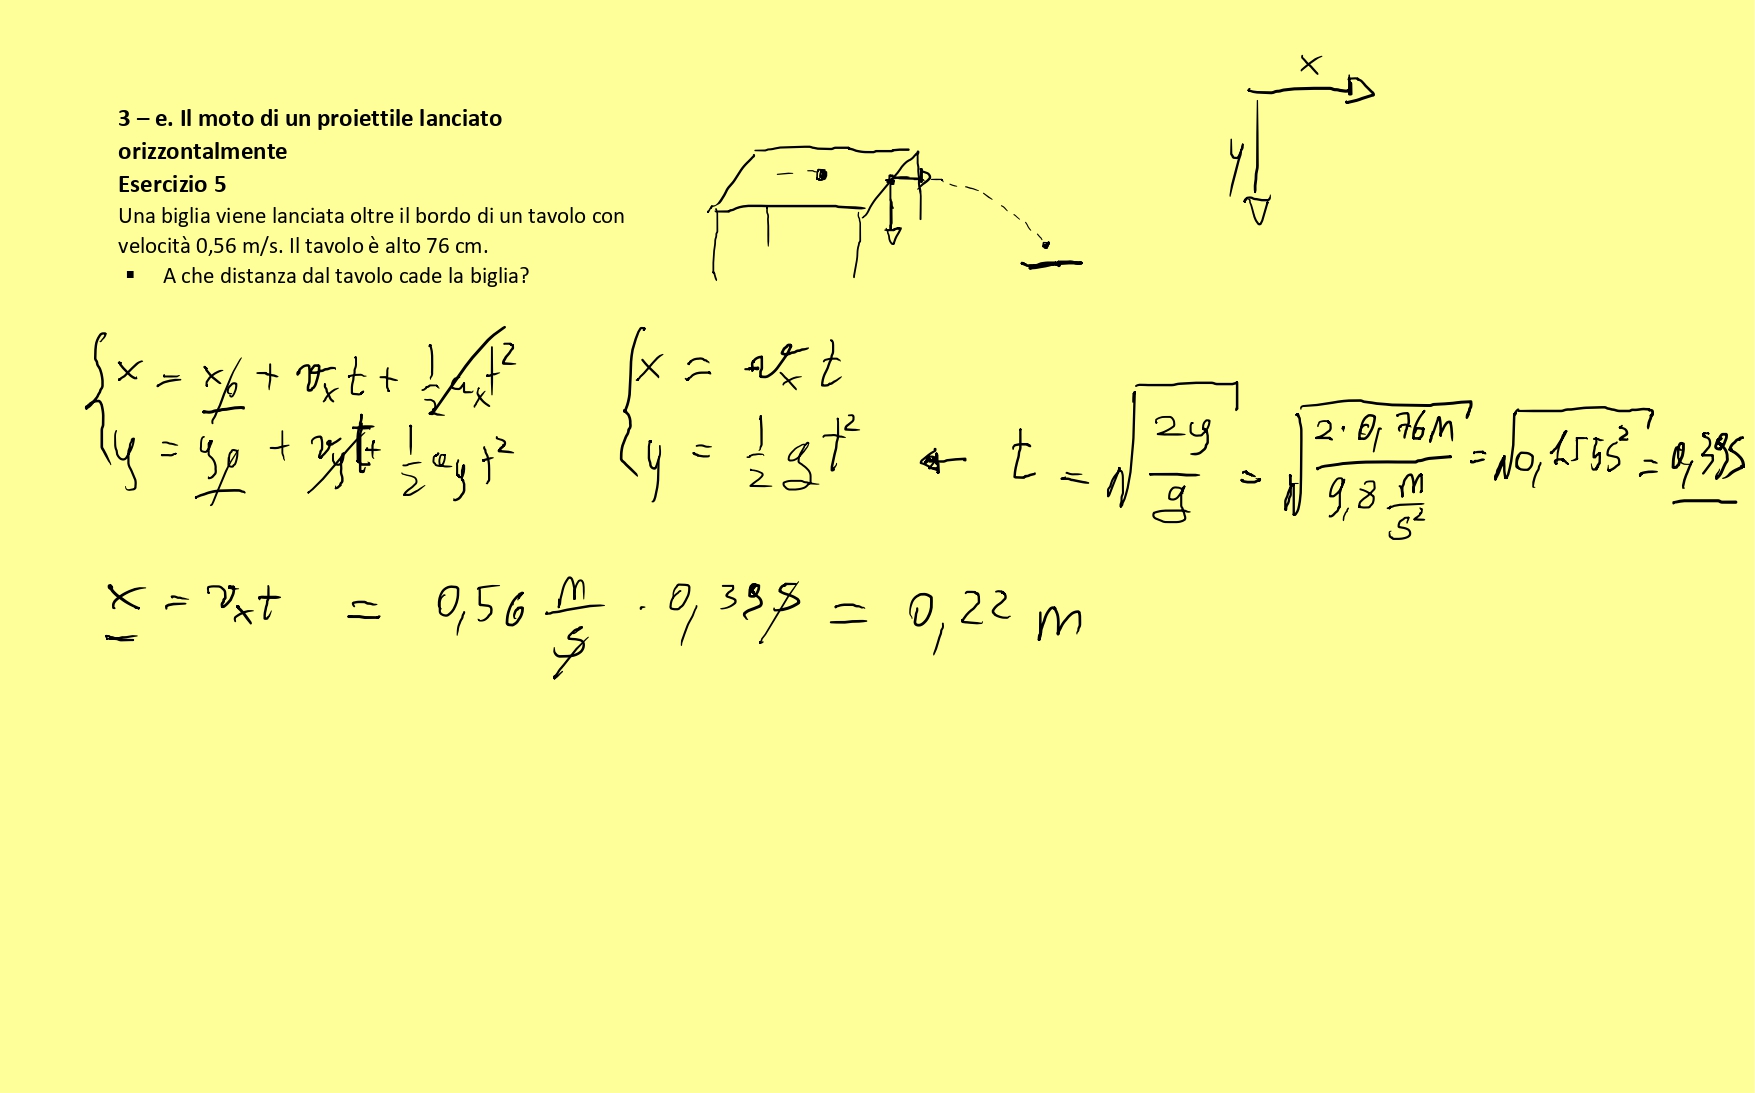 3 – e. Il moto di un proiettile lanciato
orizzontalmente
Esercizio 5
Una biglia viene lanciata oltre il bordo di un tavolo con
velocità 0,56 m/s. Il tavolo è alto 76 cm.
▪ A che distanza dal tavolo cade la biglia?
x
y
x = x₀ + vₓt + 1/2 aₓt²
y = y₀ + v_y t + 1/2 a_y t²
x = vₓ t
y = 1/2 g t² ← t = √(2y/g) = √(2·0,76m / 9,8 m/s²) = √0,155s² = 0,39s
x = vₓt = 0,56 m/s · 0,39s = 0,22 m